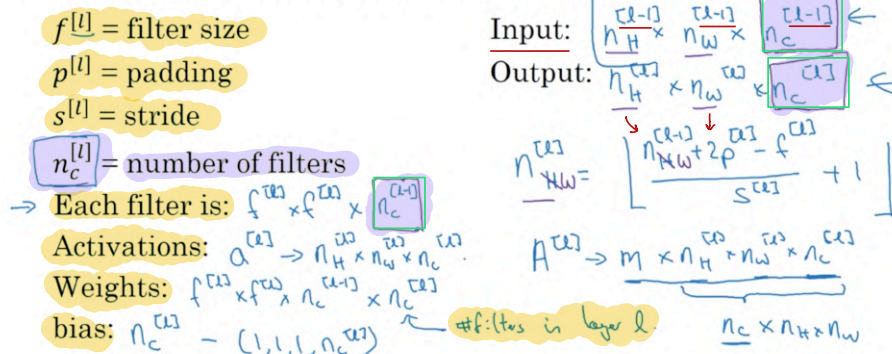 f^[l] = filter size
p^[l] = padding
s^[l] = stride
n_c^[l] = number of filters
→ Each filter is: f^[l] × f^[l] × n_c^[l-1]
Activations: a^[l] → n_H^[l] × n_W^[l] × n_c^[l].
Weights: f^[l] × f^[l] × n_c^[l-1] × n_c^[l]
bias: n_c^[l] - (1,1,1,n_c^[l])
#filters in layer l.
Input: n_H^[l-1] × n_W^[l-1] × n_c^[l-1] ←
Output: n_H^[l] × n_W^[l] × n_c^[l] ←
n_W^[l] = ⌊ (n_W^[l-1] + 2p^[l] - f^[l]) / s^[l] + 1 ⌋
A^[l] → m × n_H^[l] × n_W^[l] × n_c^[l]
n_c × n_H × n_W